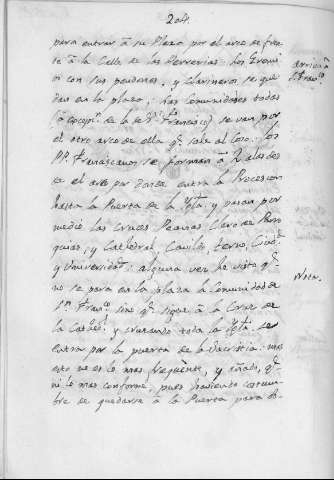 204.
para entrar à su Plaza por el arco de fren-
te à la Calle de las Herrerias: los Gremi-
os con sus pendones, y Clarineros se que-
dan en la plaza; las Comunidades todas
(à excepⁿ. de la de Sⁿ. Franᶜᵒ) se van por
el otro arco de ella qᵉ. sale al Coso: los
PP. Franciscanos se forman à 2 alas des-
de el arco por donde entra la Procesion
hasta la Puerta de la Yglª, y pasan por
medio las Cruces, Peanas, Clero de Parro-
quias, y Cathedral, Cavildo, terno, Ciudᵈ.
y Universidad: alguna vez he visto qᵉ.
no se para en la plaza la Comunidad de
Sⁿ. Franᶜᵒ. sino qᵉ. sigue à la Cruz de
la Cathedˡ. y cruzando toda la Yglª. se
entra por la puerta de la Sacristia: mas
esto no es lo mas freqüente, y añado, qᵉ.
ni lo mas conforme, pues haviendo costum-
bre de quedarse à la Puerta para
arriva à
Sⁿ. Franᶜᵒ
Nota.